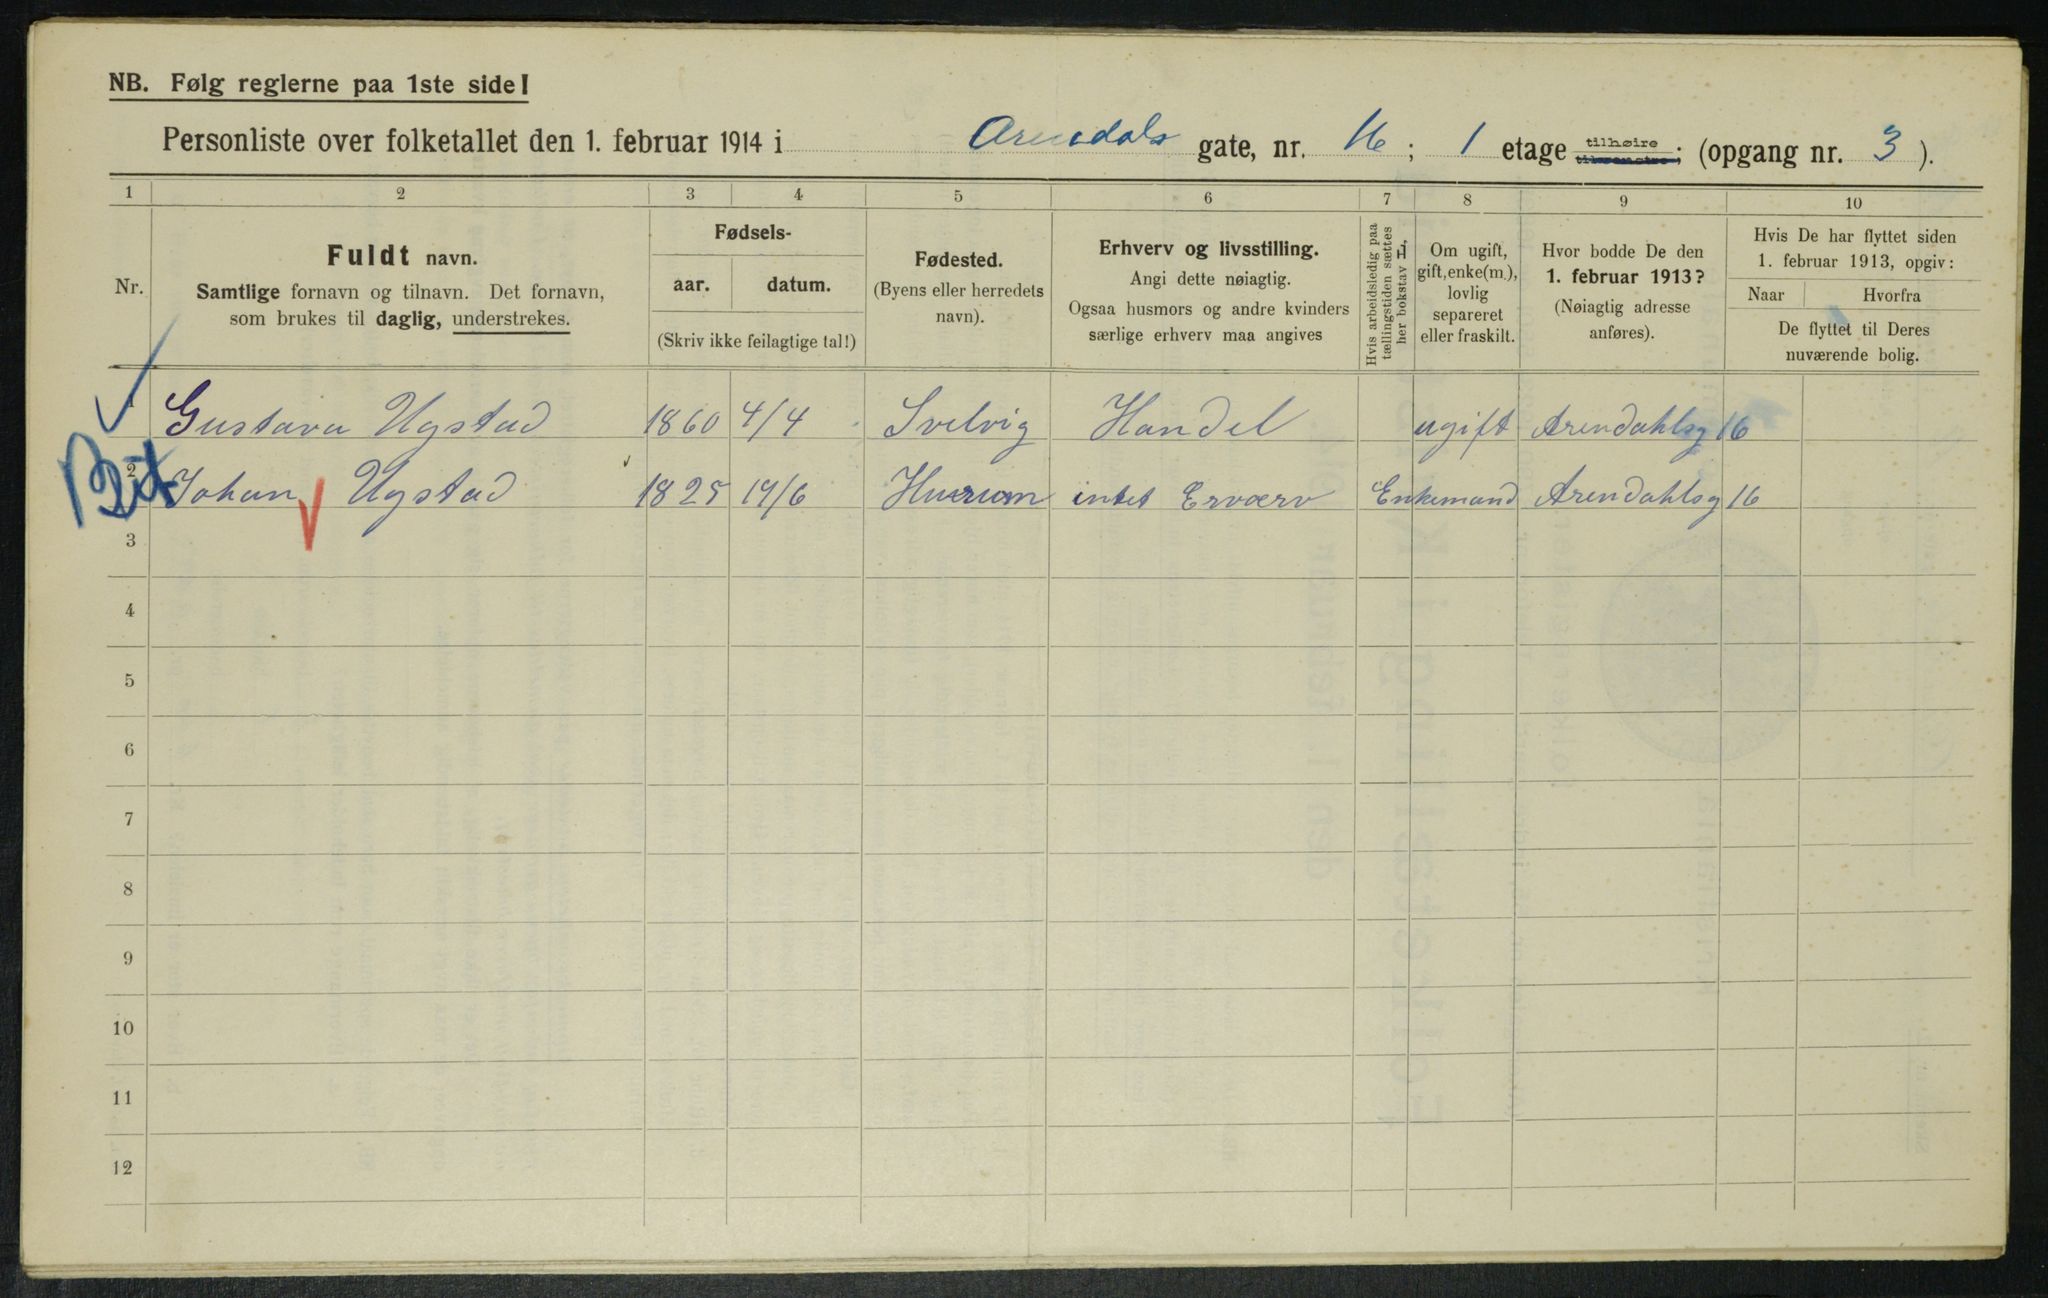 NB. Følg reglerne paa 1ste side!
Personliste over folketallet den 1. februar 1914 i Arendals gate, nr. 16 ; 1 etage tilhøire tilvenstre; (opgang nr. 3 ).
1 2 3 4 5 6 7 8 9 10
Nr.
Fuldt navn.
Samtlige fornavn og tilnavn. Det fornavn,
som brukes til daglig, understrekes.
Fødsels-
aar. datum.
(Skriv ikke feilagtige tal!)
Fødested.
(Byens eller herredets
navn).
Erhverv og livsstilling.
Angi dette nøiagtig.
Ogsaa husmors og andre kvinders
særlige erhverv maa angives
Hvis arbeidsledig paa
tællingstiden sættes
her bokstav L.
Om ugift,
gift, enke(m.),
lovlig
separeret
eller fraskilt.
Hvor bodde De den
1. februar 1913?
(Nøiagtig adresse
anføres).
Hvis De har flyttet siden
1. februar 1913, opgiv:
Naar Hvorfra
De flyttet til Deres
nuværende bolig.
1 Gustava Ugstad 1860 4/4 Svelvig Handel ugift Arendahlsg 16
2 Johan Ugstad 1825 19/6 Hurum intet Erværv Enkemand Arendahlsg 16
3
4
5
6
7
8
9
10
11
12